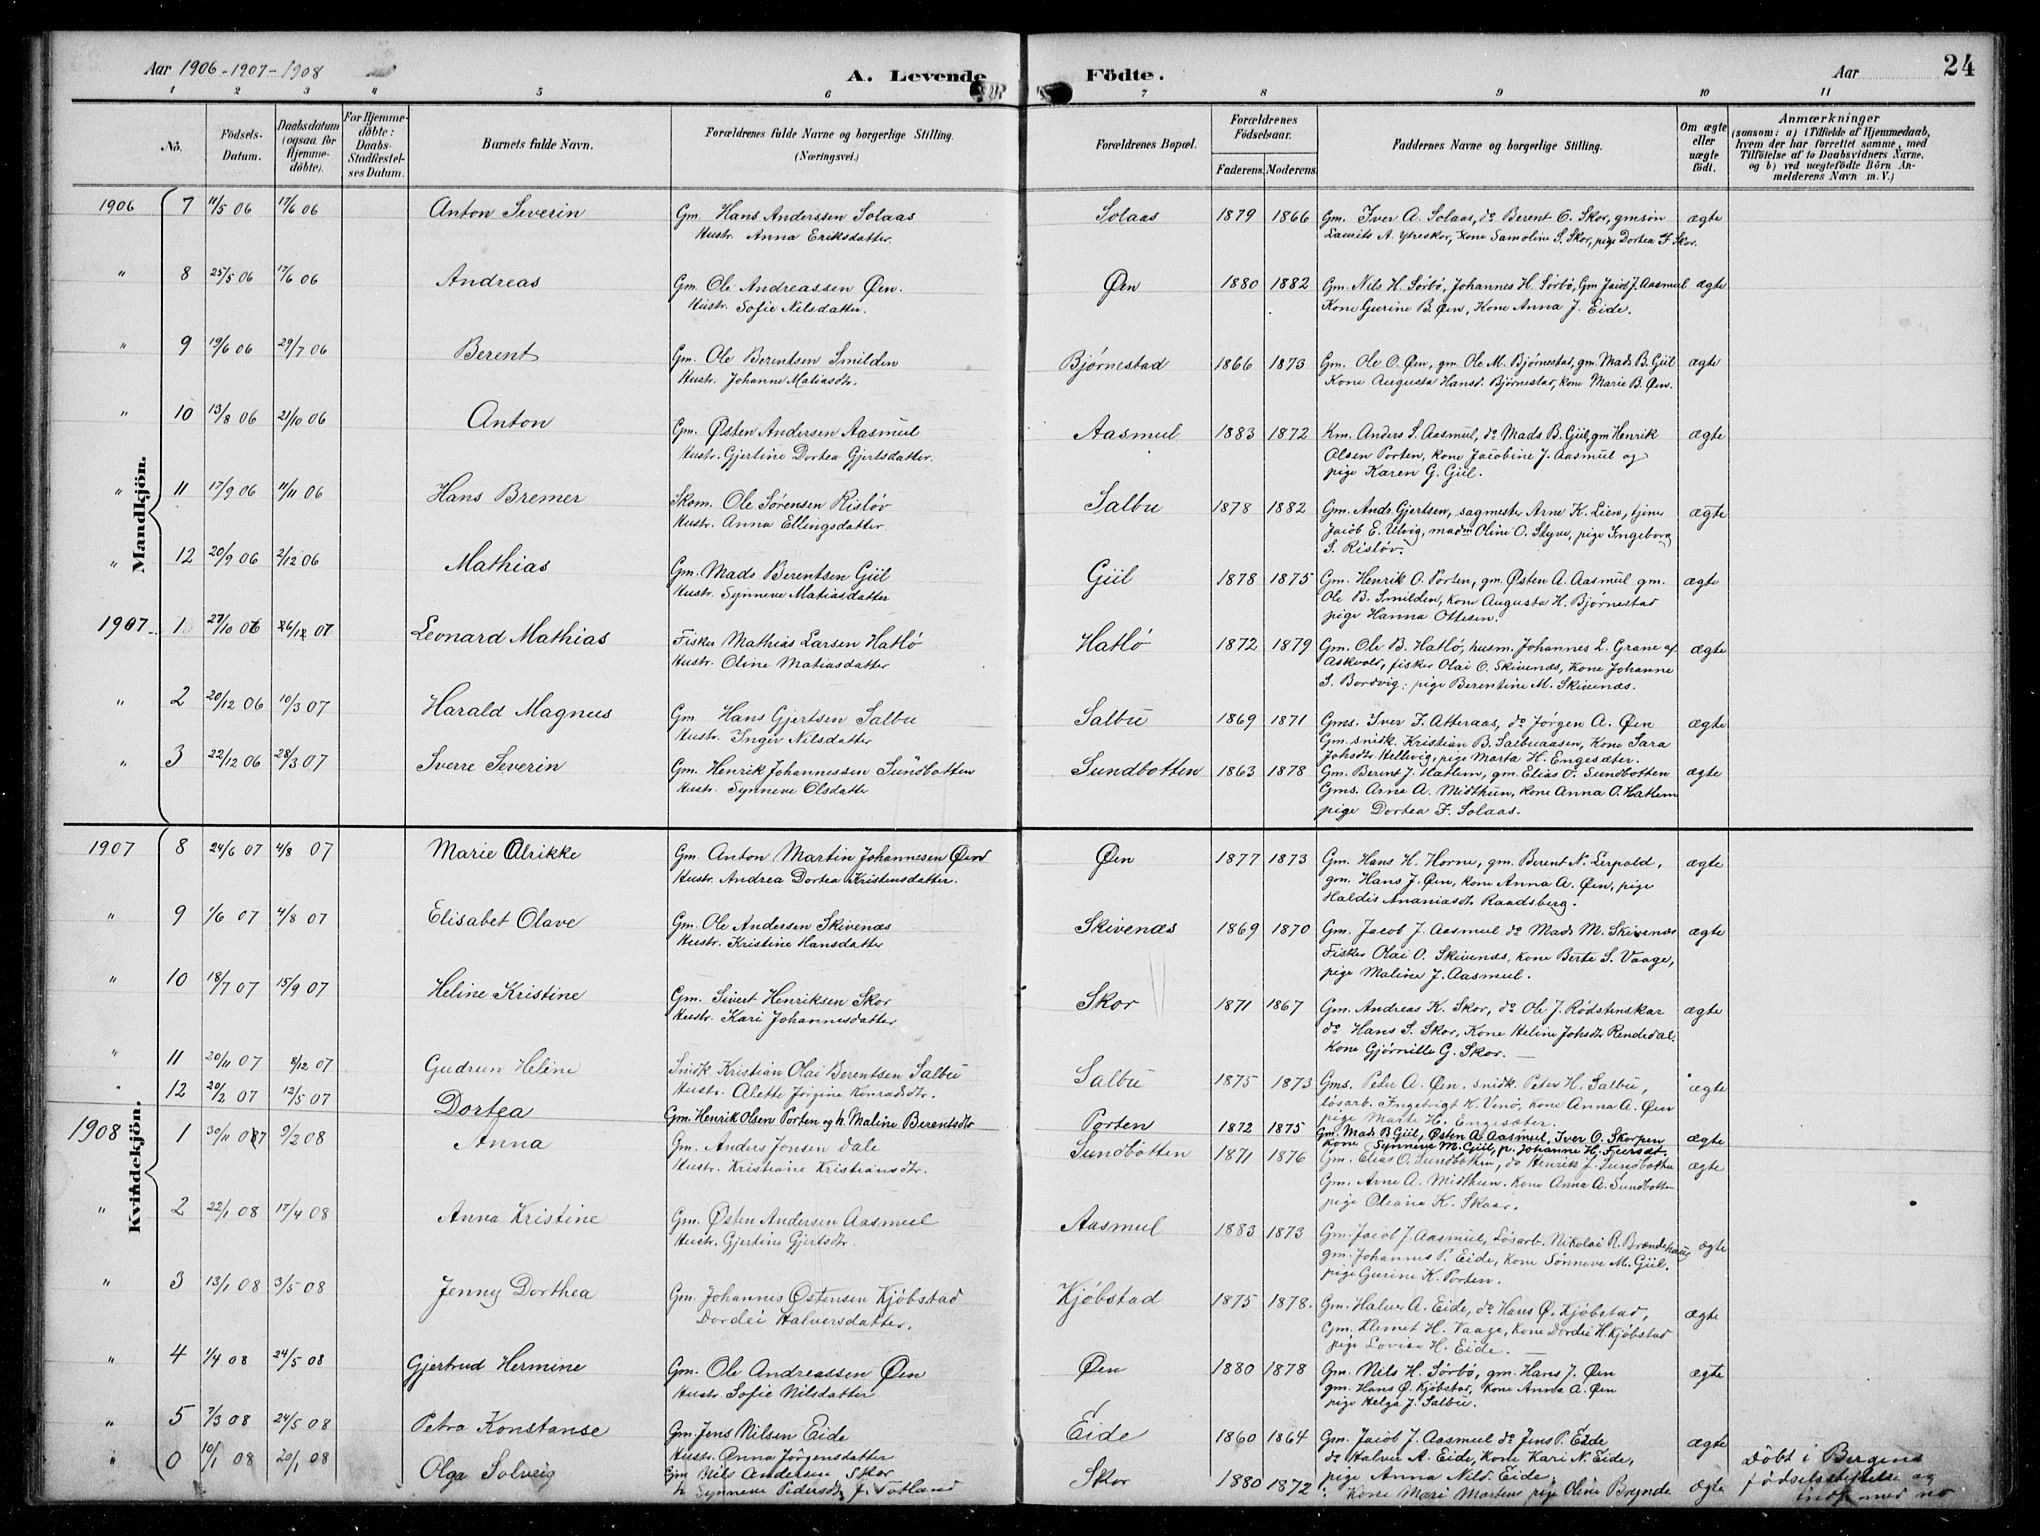 Aar 1906-1907-1908
A. Levende Födte.
Aar
24
1 2 3 4 5 6 7 8 9 10 11
No.
Födsels-Datum.
Daabsdatum (ogsaa for Hjemmedöbte).
For Hjemmedöbte: Daabs-Stadfæstelses Datum.
Barnets fulde Navn.
Forældrenes fulde Navne og borgerlige Stilling. (Næringsvei.)
Forældrenes Bopæl.
Forældrenes Födselsaar.
Faderens. Moderens.
Faddernes Navne og borgerlige Stilling.
Om ægte eller uægte födt.
Anmærkninger
(saasom: a) i Tilfælde af Hjemmedaab, hvem der har forrettet samme, med Tilföielse af to Daabsvidners Navne, og b) ved uægtefödte Börn Anmelderens Navn m. V.)
Mandkjön.
1906 7 11/5 06 17/6 06 Anton Severin Gm. Hans Anderssen Solaas Solaas 1879 1866 Gm. Iver A. Solaas, do Berent O. Skor, gmsøn ægte
Hustr. Anna Eriksdatter. Laurits A. Ytreskor, Kone Samoline S. Skor, pige Dortea F Skor.
" 8 25/5 06 17/6 06 Andreas Gm. Ole Andreassen Øen. Øen 1880 1882 Gm. Nils H. Sørbø, Johannes H. Sørbø, Gm Jacob J. Aasmul ægte
Hustr. Sofie Nilsdatter. Kone Gurine B. Øen, Kone Anna J. Eide.
" 9 19/6 06 29/7 06 Berent Gm. Ole Berentsen Smilden Bjørnestad 1866 1873 Gm. Ole O. Øen, gm. Ole M. Bjørnestad, gm. Mads B. Gül ægte
Hustr. Johanne Matiasdtr. Kone Augusta Hansd. Bjørnestad, kone Marie B. Øen.
" 10 13/8 06 21/10 06 Anton Gm. Østen Andersen Aasmul Aasmul 1883 1872 Km. Anders S. Aasmul, do Mads B. Gül, gm Henrik ægte
Hustr. Gjertine Dortea Gjertsdatter. Olsen Porten, kone Jacobine J. Aasmul og
pige Karen G. Gül.
" 11 17/9 06 11/11 06 Hans Bremer Skom. Ole Sørensen Risløv Salbu 1878 1882 Gm. Ands Gjertsen, sagmestr Arne K. Lien, tjener ægte
Hustr. Anna Ellingsdatter. Jacob E. Ulvig, madm Oline O. Styve, pige Ingeborg
S. Risløv.
" 12 20/9 06 2/12 06 Mathias Gm. Mads Berentsen Gül Gül 1878 1875 Gm. Henrik O. Porten, gm. Østen A. Aasmul gm. ægte
Hustr. Synneve Matiasdatter Ole B. Smilden, kone Augusta H. Bjørnestad
pige Hanna Ottesen.
1907 1 27/10 06 07 Leonard Mathias Fisker Mathias Larsen Hatlø Hatlø 1872 1879 Gm. Ole B. Hatlø, husm. Johannes L. Grane af ægte
Hustr. Oline Matiasdatter Askvold, fisker Olai O. Skivenæs, Kone Johanne
S. Bordvig; pige Berentine M. Skivenæs.
" 2 20/12 06 10/3 07 Harald Magnus Gm Hans Gjertsen Salbu Salbu 1869 1871 Gms. Iver F. Atteraas, do Jørgen A. Øen ægte
Hustr. Inger Nilsdatter Gm. snidk. Kristian B. Salbuaasen, Kone Sara
Johsdtr Hellevig, pige Marta H. Engesæter.
" 3 22/12 06 28/3 07 Sverre Severin Gm. Henrik Johannessen Sundbotten Sundbotten 1863 1878 Gm. Berent J. Hatlem, gm. Elias O. Sundbotten ægte
Hustr. Synneve Olsdatter Gms. Arne A. Midthun, kone Anna O. Hatlem
pige Dortea F. Solaas.
Kvindekjön.
1907 8 24/6 07 4/8 07 Marie Olrikke Gm. Anton Martin Johannesen Øen Øen 1877 1873 Gm. Hans H. Horne, gm. Berent N. Lerpold, ægte
Hustr. Andrea Dortea Kristensdatter. gm. Hans J. Øen, kone Anna A. Øen, pige
Haldis Ananiasdtr Raadsberg.
" 9 1/6 07 4/8 07 Elisabet Olave Gm. Ole Andersen Skivenæs Skivenæs 1869 1870 Gm. Jacob J. Aasmul do Mads M. Skivenæs ægte
Hustr. Kristine Hansdatter Fisker Olai O. Skivenæs, kone Berte S. Vaage,
pige Maline J. Aasmul.
" 10 18/7 07 15/9 07 Heline Kristine Gm. Sivert Henriksen Skor Skor 1871 1867 Gm. Andreas K. Skor, do Ole J. Rødstenskar ægte
Hustr. Kari Johannesdatter do Hans S. Skor, Kone Heline Johsdtr Rendedal.
Kone Gjørnille G. Skor.
" 11 20/11 07 8/12 07 Gudrun Heline Snidk Kristian Olai Berentsen Salbu Salbu 1875 1873 Gms. Peder A. Øen. snidk. Peter H. Salbu, ægte
Hustr. Alette Jørgine Konradsdtr. løsarb. Ingebrigt K. Venø, kone Anna A. Øen
pige Marte H. Engesæter.
" 12 20/2 07 12/5 07 Dortea Gm. Henrik Olsen Porten og h. Maline Berentsdtr Porten 1872 1875 Gm. Mad B Gül, Østen A. Aasmul, Iver O. Skorpen ægte
Kone Synneve M. Gül, p. Johanne H. Fursæt.
1908 1 30/11 07 9/2 08 Anna Gm. Anders Jonsen Dale Sundbotten 1871 1876 Gm. Elias O. Sundbotten, do Henrik J. Sundbotten ægte
Hustr. Kristiane Kristiansdtr. Gm. Arne A. Midthun. Kone Anna A. Sundbotten
pige Oleane K. Skaar.
" 2 22/1 08 17/4 08 Anna Kristine Gm. Østen Andersen Aasmul Aasmul 1883 1873 Gm. Jacob J. Aasmul, Løsarb. Nikolai R. Brændehaug ægte
Hustr. Gjertine Gjertsdtr. gm. Johannes P. Eide, kone Sønneve M. Gül.
pige Gurine K. Porten.
" 3 13/1 08 3/5 08 Jenny Dorthea Gm. Johannes Østensen Kjøbstad Kjøbstad 1875 1878. Gm. Halver A. Eide, do Hans Ø. Kjøbstad, ægte
Dordei Halversdatter. Gm. Klemet H. Vaage, Kone Dordei H. Kjøbstad
pige Lovise H. Eide.
" 4 1/4 08 24/5 08 Gjertrud Hermine Gm. Ole Andreassen Øen Øen 1880 1878 Gm. Nils H. Sørbø, gm. Hans J. Øen ægte
Hustr Sofie Nilsdatter gm. Hans Ø. Kjøbstad, Kone Anna A. Øen
pige Helga J. Salbu.
" 5 7/3 08 24/5 08 Petra Konstanse Gm Jens Nilsen Eide Eide 1860 1864 Gm. Jacob J. Aasmul do Jens P. Eide ægte
Hustr. Anna Jørgensdatter do Halver A. Eide, Kone Kari N. Eide,
pige Anna Nilsd. Eide.
" 0 10/1 08 20/1 08 Olga Solveig Gm Nils Andersen Skor Skor 1880 1872 Kone Mari Martens pige Oline Brynde ægte Døbt i Bergens
h Synneve Pedersdtr f. Totland fødselsstiftelse og
indk med no